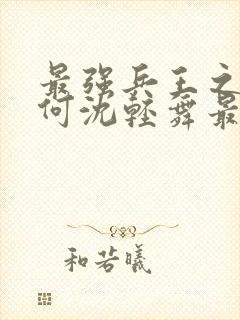 最强兵王之
何沈轻舞最
和若曦